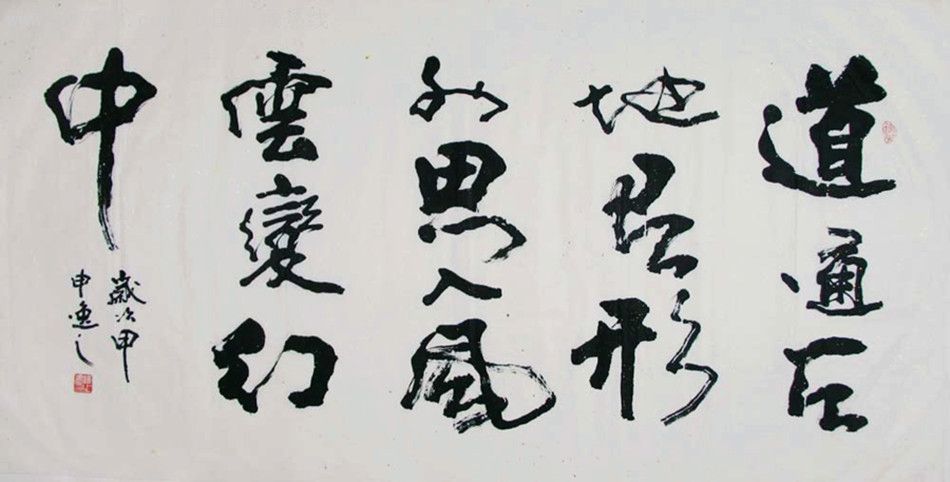 道通天
地有形
外思入風
雲變幻
中
歲次甲
申逸之